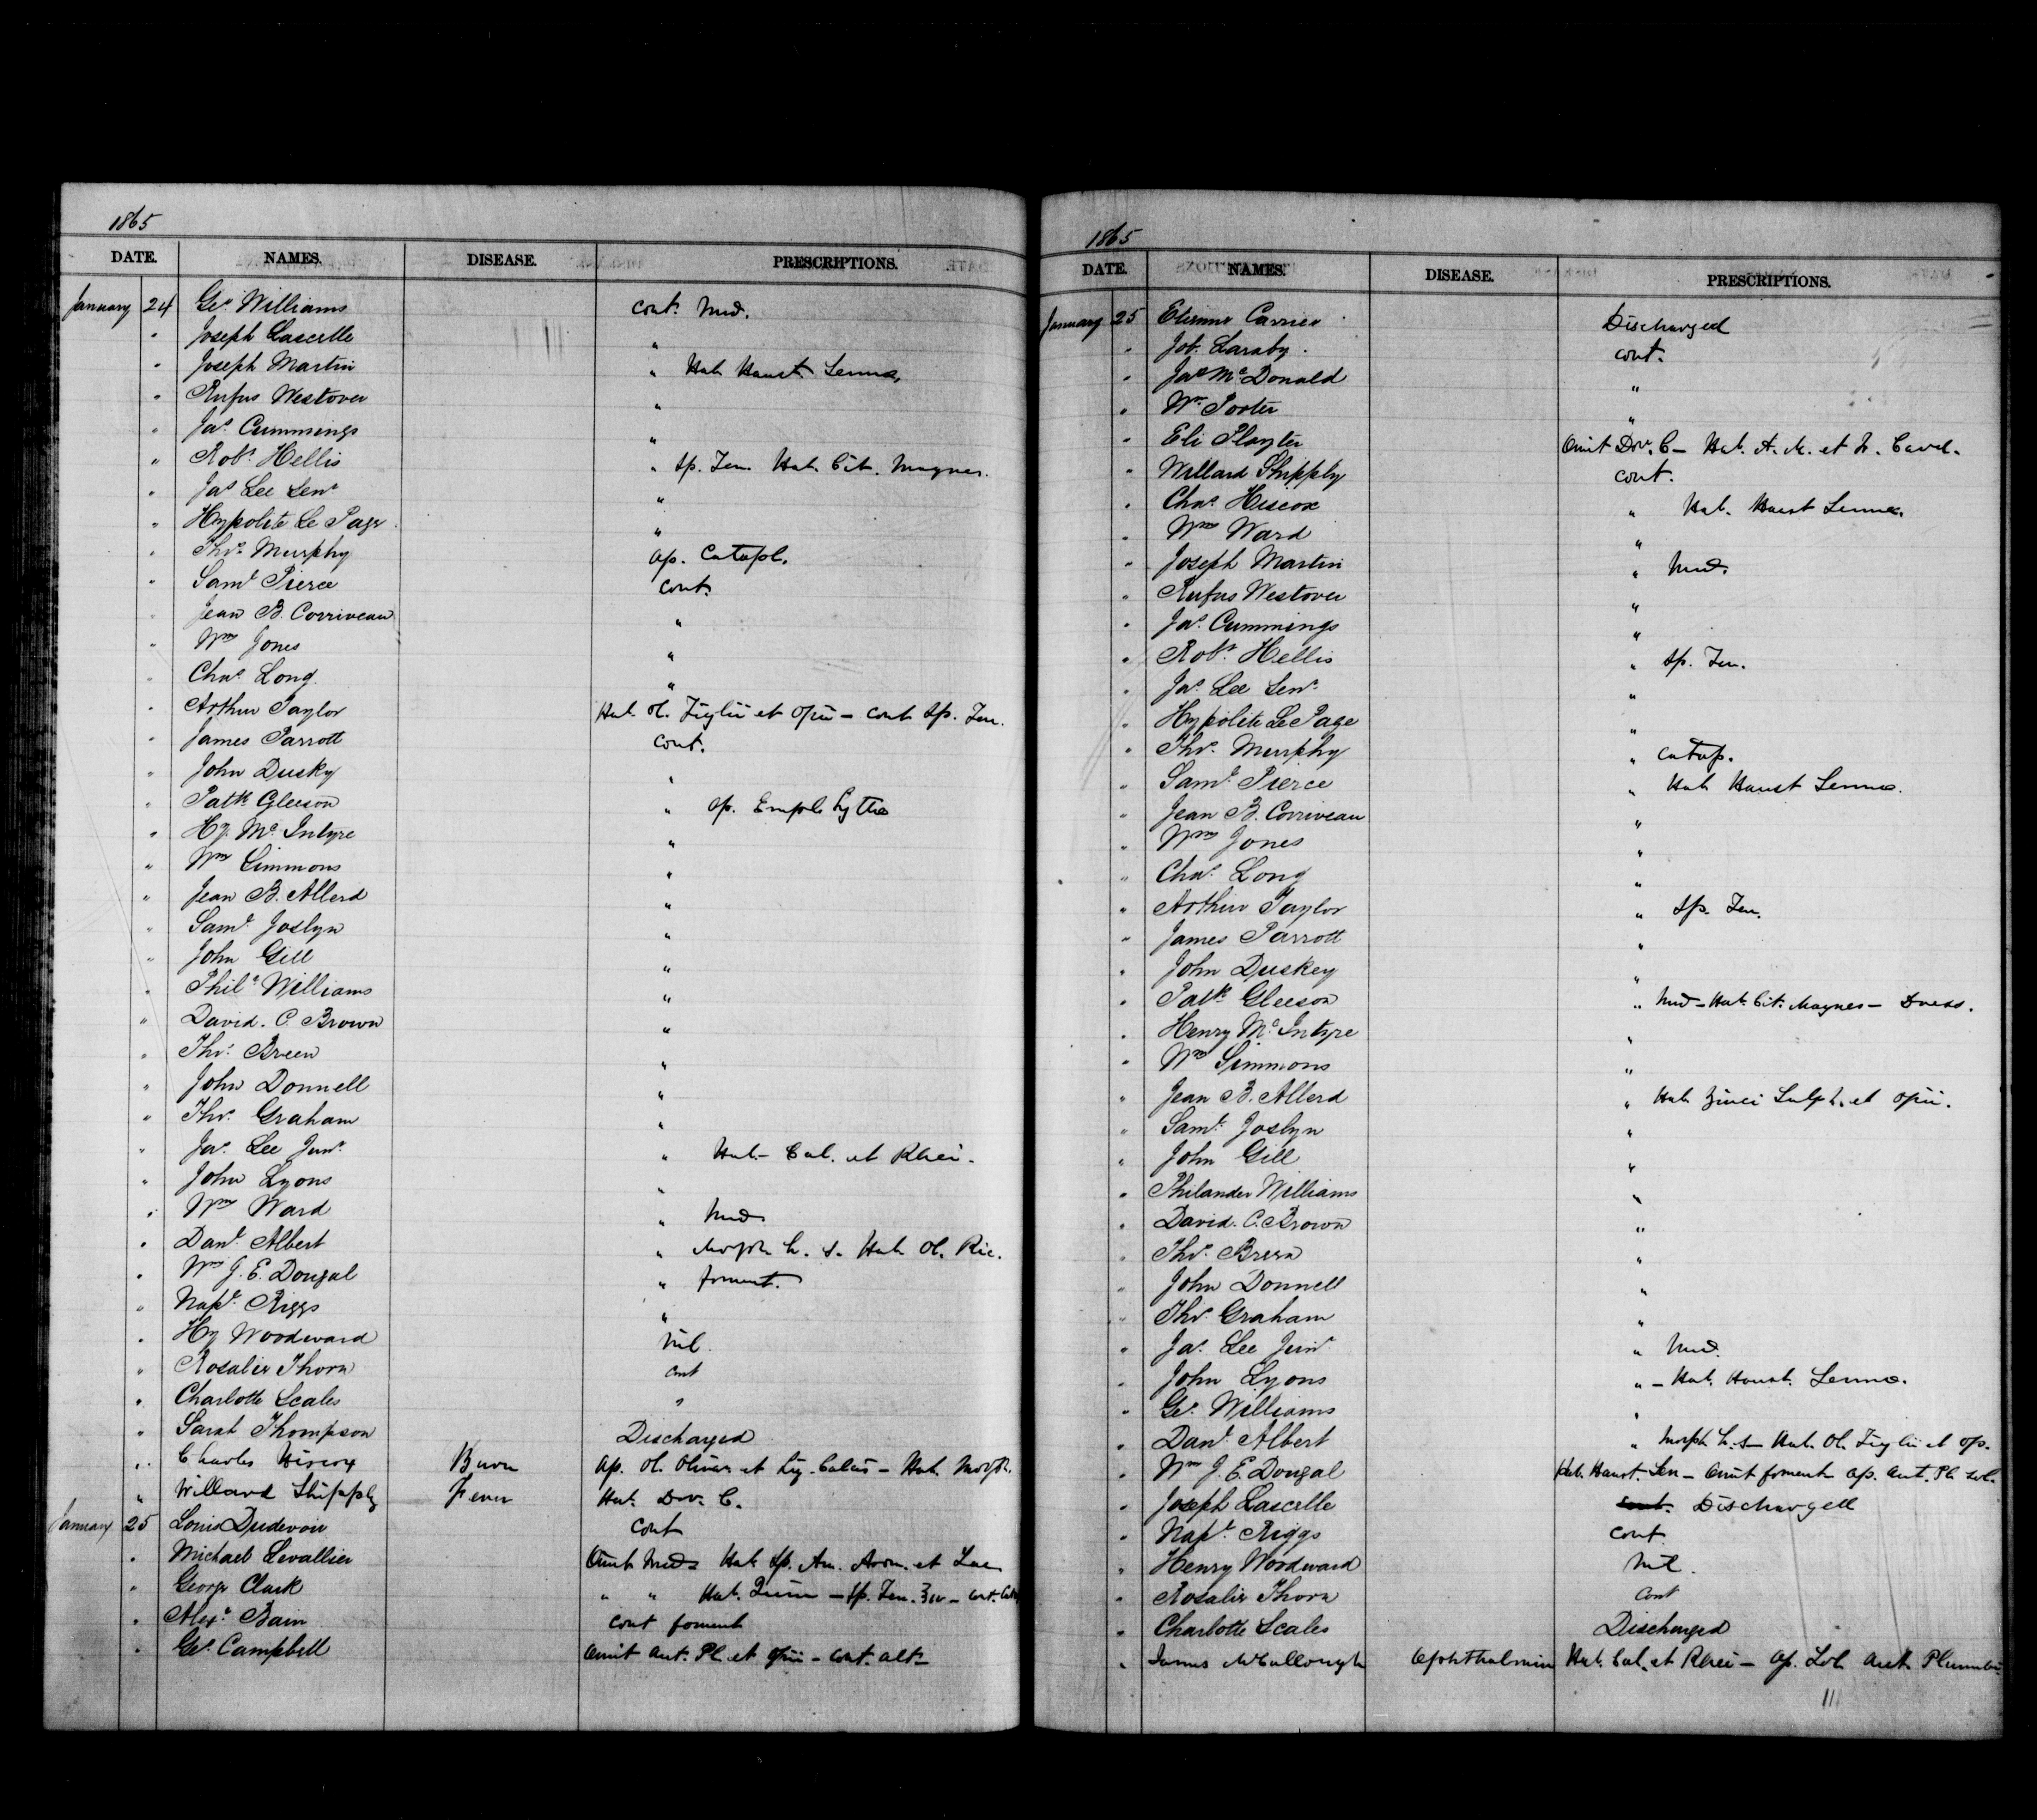 1865
DATE. NAMES. DISEASE. PRESCRIPTIONS.
January 24 Geo Williams cont. Med.
" Joseph Lascelle "
" Joseph Martin " Hab. Haust. Sennae
" Rufus Westover "
" Jas. Cummings "
" Robt. Hellis " Sp. Fru. Hab. Cit. Magnes.
" Jas Lee Senr "
" Hypolite Le Page "
" Thos. Murphy Ap. Catapl.
" Saml Pierce cont.
" Jean B. Corriveau "
" Wm Jones "
" Chas. Long "
" Arthur Taylor Hab. Ol. Tiglii et Opii - cont Sp. Fru.
" James Parrott cont.
" John Dusky "
" Patk Gleeson " Ap. Empl. Lyttae
" Hy. Mc.Intyre "
" Wm Simmons "
" Jean B. Allerd "
" Saml Joslyn "
" John Gill "
" Phil. Williams "
" David. C. Brown "
" Thos. Breen "
" John Donnell "
" Thos. Graham "
" Jas. Lee Junr. " Hab. - Cal. et Rhei.
" John Lyons "
" Wm Ward " Med.
" Danl Albert " Morph h. s. Hab. Ol. Ric.
" Wm J. E. Dougal " foment.
" Napn. Riggs "
" Hy Woodward Nil.
" Rosalie Thorn cont
" Charlotte Scales "
" Sarah Thompson Discharged
" Charles Hiscox Burn Ap. Ol. Olivae et Liq. Calcis - Hab. Morph.
" Willard Shipply Fever Hab. Dov. C.
January 25 Louis Dudevoir cont
" Michael Levallier Omit Med - Hab Sp. Am. Arom. et Lac
" George Clark " " Hab. Quin - Sp. Fru.
" Alexr. Bain cont foment
" Geo. Campbell Omit Aut. Pl. et Opii - cont. alt
1865
DATE. NAMES. DISEASE. PRESCRIPTIONS.
January 25 Etienne Carrier Discharged
" Job. Laraby. cont.
" Jas Mc.Donald "
" Wm. Porter "
" Eli Playter Omit Dov. C - Hab. A. M. et
" Willard Shipply cont.
" Chas. Hiscox " Hab. Haust Sennae.
" Wm Ward "
" Joseph Martin " Med.
" Rufus Westover "
" Jas. Cummings "
" Robt. Hellis " Sp. Fru.
" Jas. Lee Senr. "
" Hypolite Le Page "
" Thos. Murphy " Catap.
" Saml. Pierce " Hab Haust Sennae.
" Jean B. Corriveau "
" Wm Jones "
" Chas. Long "
" Arthur Taylor " Sp. Fru.
" James Parrott "
" John Duskey "
" Patk Gleeson " Med - Hab. Cit. Magnes - Dress.
" Henry Mc.Intyre "
" Wm Simmons "
" Jean B. Allerd " Hab. Zinci Sulph. et Opii.
" Saml. Joslyn "
" John Gill "
" Philander Williams "
" David. C. Brown "
" Thos. Breen "
" John Donnell "
" Thos. Graham "
" Jas. Lee Junr. " Med.
" John Lyons " - Hab. Haust. Sennae.
" Geo. Williams "
" Danl. Albert " Morph h.s - Hab. Ol. Tiglii et Op.
" Wm J. E. Dougal Hab. Haust. Sen - Omit foment Ap. Aut. Pl. Sol.
" Joseph Lascelle cont. Discharged
" Napn. Riggs cont
" Henry Woodward Nil.
" Rosalie Thorn cont
" Charlotte Scales Discharged
" James McCullough Ophthalmia Hab. Cal. et Rhei - Ap. Sol. Acet Plumbi
111